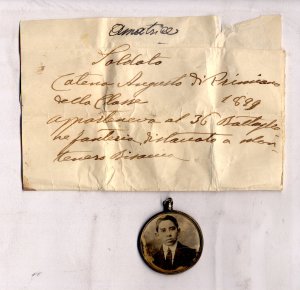 Amatrice
Soldato
Catena Augusto di Primiano
della Classe 1899
apparteneva al 35 Battaglio
ne fanteria, distaccato a
Bisaccia